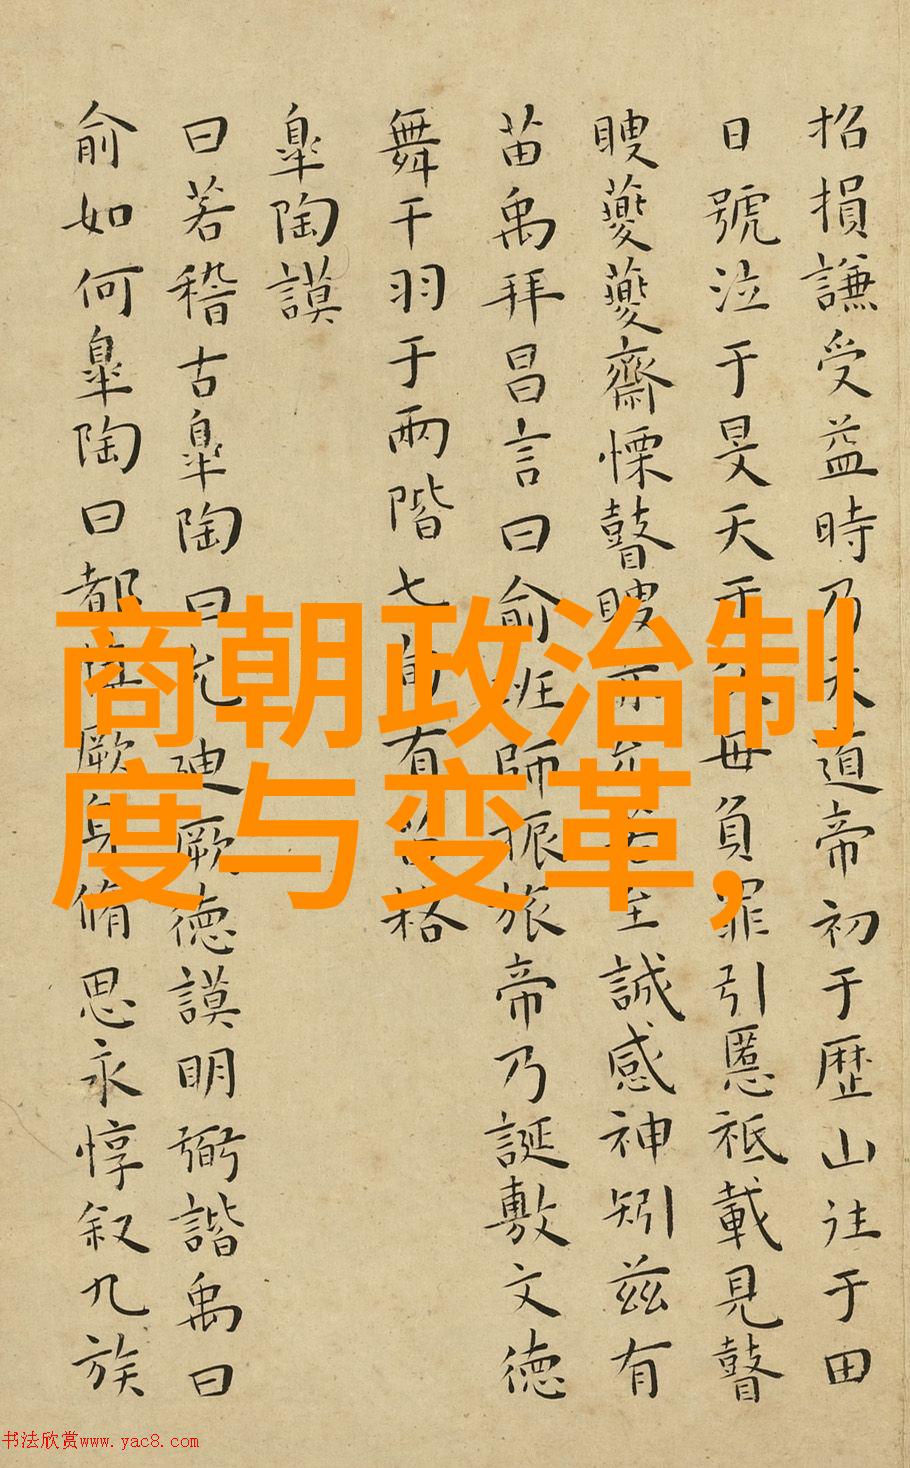 招損謙受益時乃天道帝初于歷山往于田
日號泣于旻天于父母負罪引慝祗載見瞽
瞍夔夔齋慄瞽瞍亦允若至誠感神矧茲有
苗禹拜昌言曰俞班師振旅帝乃誕敷文德
舞干羽于兩階七旬有苗格
皐陶謨
曰若稽古皐陶曰允迪厥德謨明弼諧禹曰
俞如何皐陶曰都慎厥身脩思永惇叙九族
商朝政治制
度与变革,
书法欣赏www.yac8.com